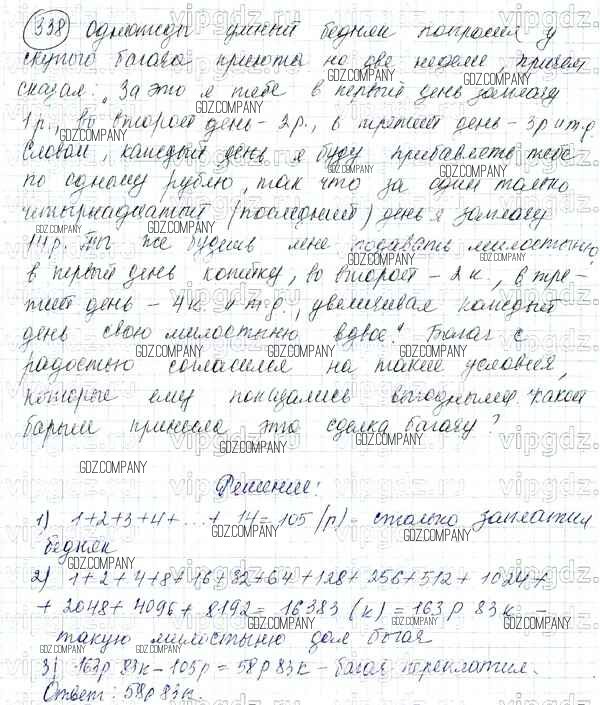 338) Однажды умный бедняк попросил у
скупого богача приюта на две недели, причем
сказал: „За это я тебе в первый день заплачу
1 р., во второй день - 2 р., в третий день - 3 р и т.д
Словом, каждый день я буду прибавлять тебе
по одному рублю, так что за один только
четырнадцатый (последний) день я заплачу
14 р. Ты же будешь мне подавать милостыню,
в первый день копейку, во второй - 2 к., в тре-
тий день - 4 к. и т.д., увеличивая каждый
день свою милостыню вдвое." Богач с
радостью согласился на такие условия,
которые ему показались выгодными. Какой
барыш принесла эта сделка богачу?
Решение:
1) 1+2+3+4+...+ 14= 105 (р) - столько заплатил
бедняк
2) 1+2+4+8+16+32+64+128+256+512+ 1024+
+ 2048+ 4096+ 8192= 16383 (к) = 163 р 83 к -
такую милостыню дал богач
3) 163 р 83 к - 105 р = 58 р 83 к - богач переплатил.
Ответ: 58 р 83 к.
GDZ.COMPANY
vipgdz.ru